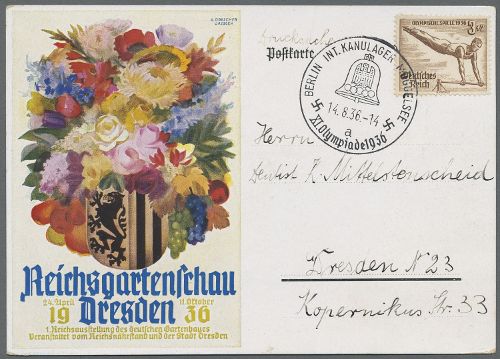 Reichsgartenschau
24. April
11. Oktober
19 Dresden 36
1. Reichsausstellung des deutschen Gartenbaues
Veranstaltet vom Reichsnährstand und der Stadt Dresden
Drucksache
Postkarte
BERLIN INT. KANULAGER
14.8.36.-14
a
XI. Olympiade 1936
OLYMPISCHE SPIELE 1936
Deutsches
Reich
Herrn
Dentist K. Mittelstenscheid
Dresden N 23
Kopernikus Str. 33